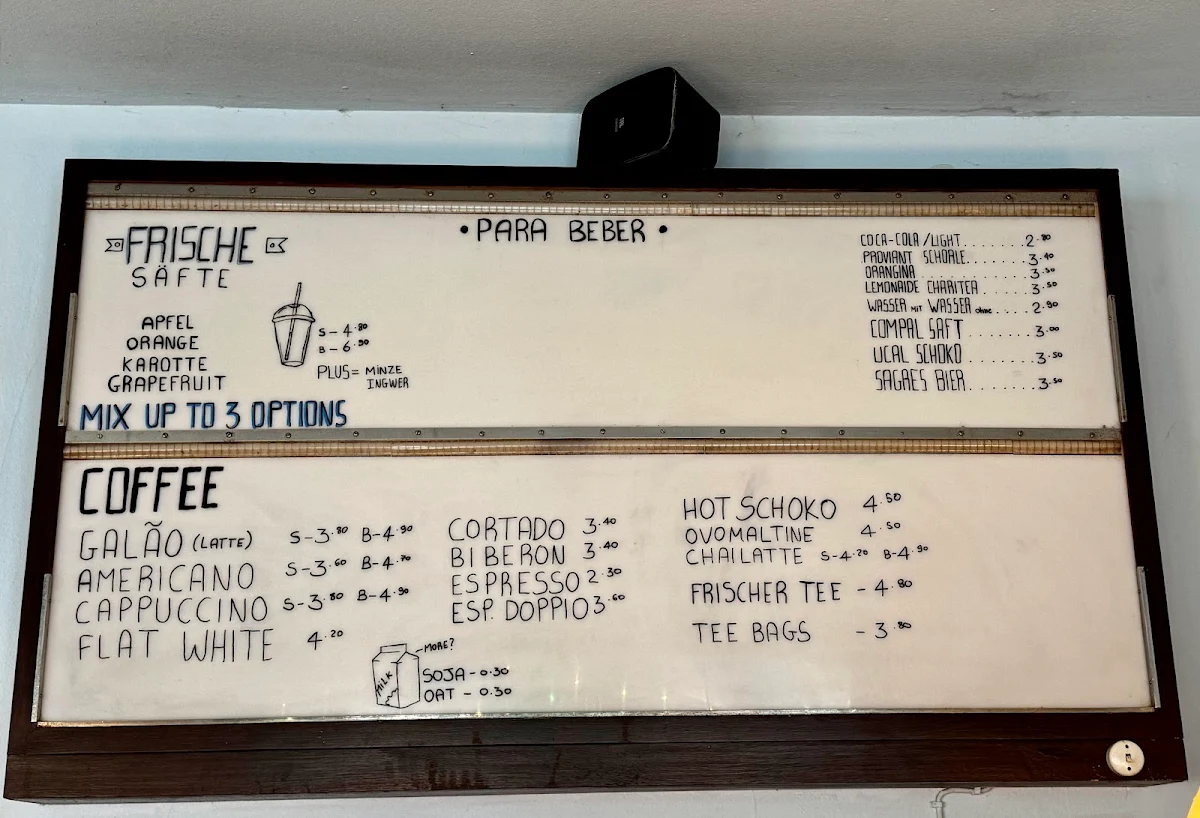 • PARA BEBER •
FRISCHE
SÄFTE
APFEL
ORANGE
KAROTTE
GRAPEFRUIT
S - 4.80
B - 6.90
PLUS = MINZE
INGWER
MIX UP TO 3 OPTIONS
COCA-COLA/LIGHT.......2.80
PROVIANT SCHORLE.......3.40
ORANGINA..........3.50
LEMONAIDE CHARITEA....3.50
WASSER MIT WASSER ohne....2.90
COMPAL SAFT.......3.00
UCAL SCHOKO.......3.50
SAGRES BIER.......3.50
COFFEE
GALÃO (LATTE) S-3.80 B-4.90
AMERICANO S-3.60 B-4.70
CAPPUCCINO S-3.80 B-4.90
FLAT WHITE 4.20
CORTADO 3.40
BIBERON 3.40
ESPRESSO 2.30
ESP. DOPPIO 3.60
MILK
MORE?
SOJA - 0.30
OAT - 0.30
HOT SCHOKO 4.50
OVOMALTINE 4.50
CHAILATTE S-4.20 B-4.90
FRISCHER TEE - 4.80
TEE BAGS - 3.80